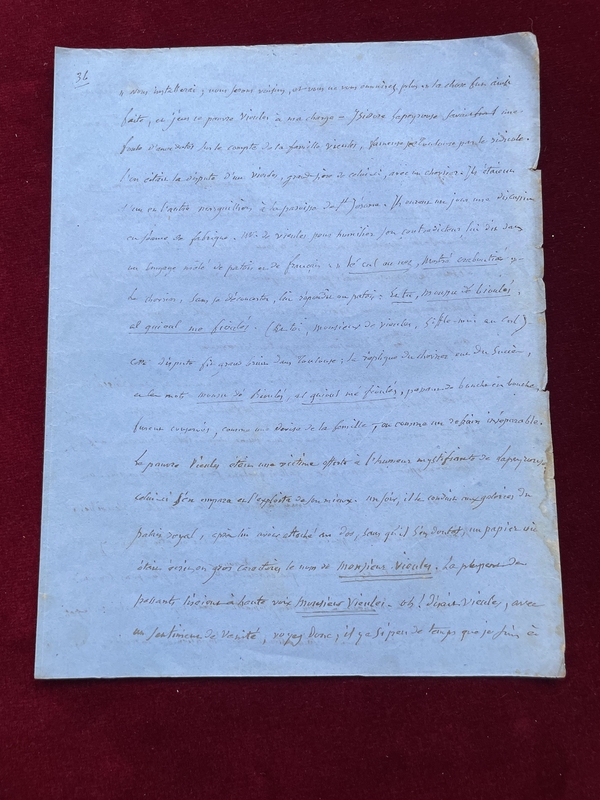 36
" vous installerai ; nous serons voisins, et vous ne vous ennuierez plus et la chose fut ainsi
faite, et j'eus ce pauvre Vieules à ma charge — Isidore Lapeyrouse savait une
foule d'anecdotes sur le compte de la famille Vieules, dans Toulouse par le ridicule.
l'on citait la dispute d'un Vieules, grand père de celui-ci, avec un Ils étaient
l'un et l'autre marguilliers, à la paroisse de St Jérome. Ils eurent un jour une discussion
en séance de fabrique. Mr de Vieules pour humilier son contradicteur lui dit dans
un langage mêlé de patois et de français, " 
le sans se déconcerter, lui répondit en patois : Et tu, moussu de Vieules,
al quioul me fieules. (Et toi, monsieur de Vieules, siffle-moi au cul)
cette dispute fit grand bruit dans Toulouse ; la réplique du eut du succès,
et les mots moussu de Bieules, al quioul me fieules, passant de bouche en bouche,
furent conservés, comme une devise de la famille, ou comme un refrain inséparable.
Le pauvre Vieules était une victime offerte à l'humeur mystifiante de Lapeyrouse
celui-ci s'en empara et l'exploita de son mieux. un soir, il le conduisit aux galeries du
palais royal, après lui avoir attaché au dos, sans qu'il s'en doutat, un papier où
était écrit en gros caractères le nom de Monsieur Vieules. La plupart des
passants lisaient à haute voix Monsieur Vieules. oh ! disait Vieules, avec
un sentiment de vanité, voyez donc, il y a si peu de temps que je suis à